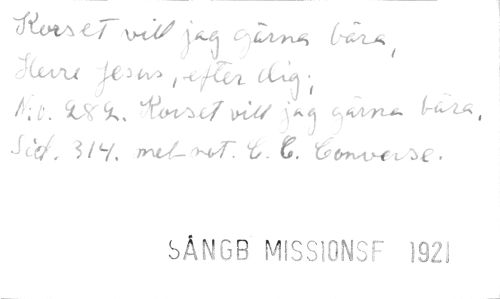 Korset vill jag gärna bära,
Herre Jesus, efter dig;
N:o. 282. Korset vill jag gärna bära.
Sid. 314. mel-not. C. C. Converse.
SÅNGB MISSIONSF 1921